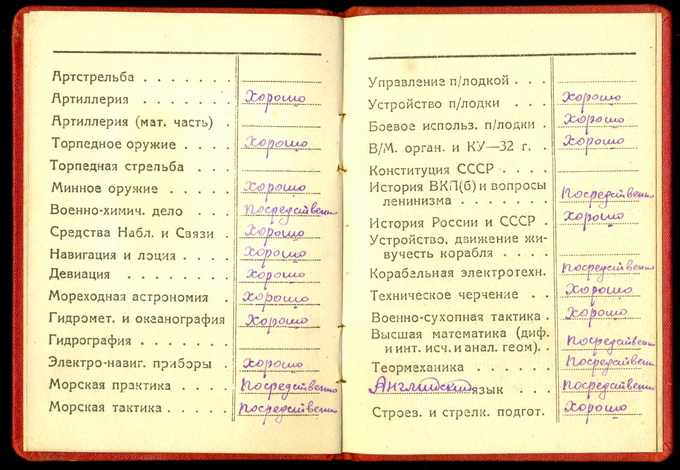 Артстрельба . . . . . . .
Артиллерия . . . . . . . хорошо
Артиллерия (мат. часть) .
Торпедное оружие . . . . хорошо
Торпедная стрельба . . .
Минное оружие . . . . . хорошо
Военно-химич. дело . . . посредственно
Средства Набл. и Связи . хорошо
Навигация и лоция . . . . хорошо
Девиация . . . . . . . . хорошо
Мореходная астрономия . хорошо
Гидромет. и океанография хорошо
Гидрография . . . . . . .
Электро-навиг. приборы хорошо
Морская практика . . . . посредственно
Морская тактика . . . . . посредственно
Управление п/лодкой . . .
Устройство п/лодки . . . хорошо
Боевое использ. п/лодки . хорошо
В/М. орган. и КУ—32 г. . хорошо
Конституция СССР . . . .
История ВКП(б) и вопросы
ленинизма . . . . . . посредственно
История России и СССР . хорошо
Устройство, движение жи-
вучесть корабля . . . .
Корабельная электротехн. посредственно
Техническое черчение . . хорошо
Военно-сухопная тактика . хорошо
Высшая математика (диф.
и инт. исч. и анал. геом). . посредственно
Теормеханика . . . . . . посредственно
Английский язык . . посредственно
Строев. и стрелк. подгот. хорошо